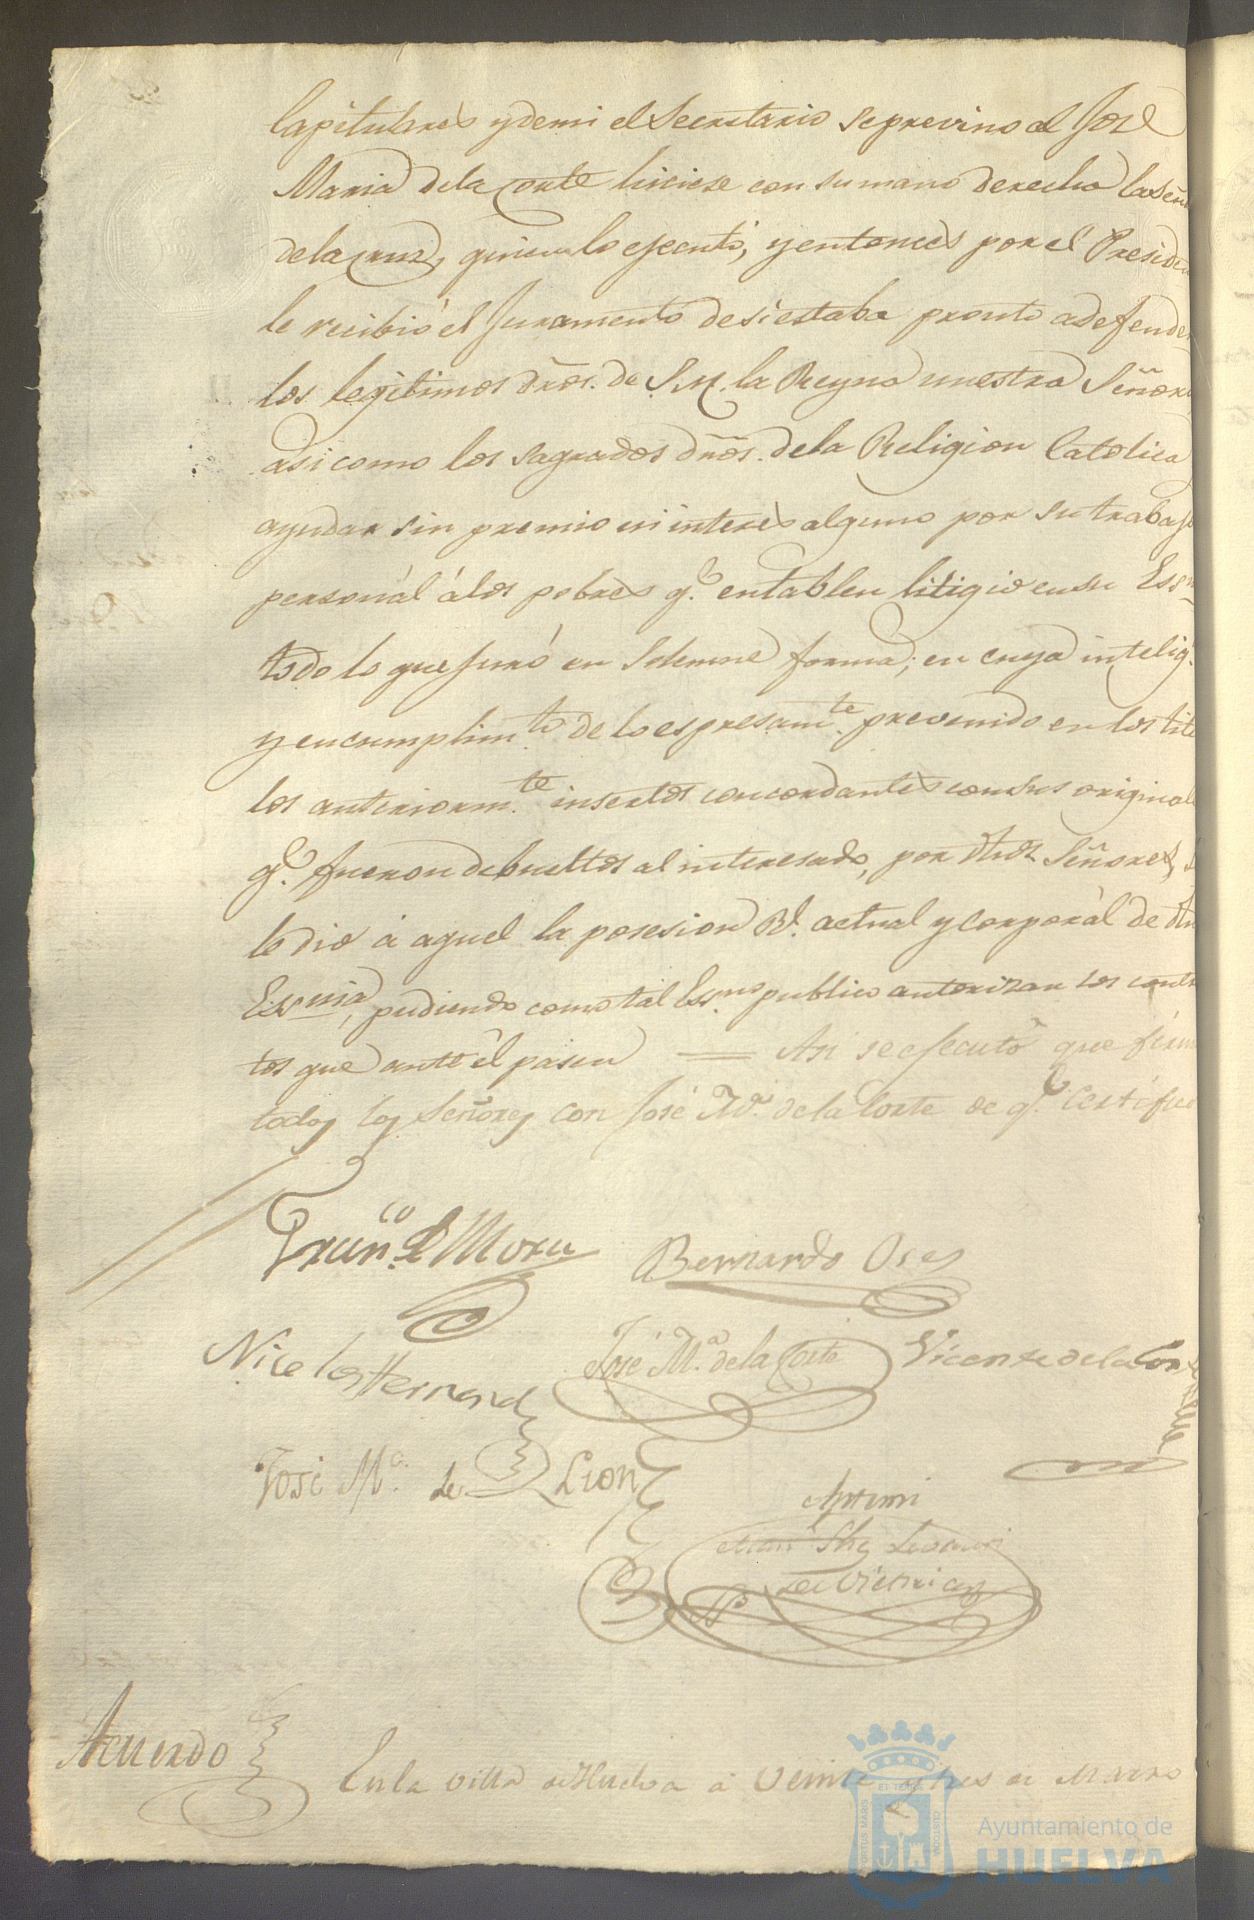 Capitulares y de mi el Secretario se previno al José
Maria de la Corte hiciese con su mano derecha la señ
de la cruz, quien lo ejecutó, y entonces por el Presiden
le recibió el Juramento de si estaba pronto a defender
los legitimos dr̃os. de S.M. la Reyna nuestra Señora
asi como los sagrados dr̃os. de la Religion Catolica
ayudar sin premio ni interes alguno por su trabajo
personál á los pobres q.e entablen litigio en su Es
todo lo que juró en solemne forma; en cuya intelig.
y en cumplim.to de lo espresam.te prevenido en los titu
los anteriorm.te insertos concordantes con sus original
q.e fueron debueltos al interesado, por dhos. Señores, s
le dió á aquel la posesion Rl. actual y corporál de dh
Essnia, pudiendo como tal Ess.no publico autorizar los contra
tos que ante él pasen = Asi se ejecutó que firm
todos los Señores con José Ma. de la Corte de q.e Certifico
Fran.co de Mora Bernardo Oses
Nicolas Hernand
José M.a de la Corte Vicente de la Cor
José M.a de Leon
Ante mi
Acuerdo
En la villa de Huelva á veinte y tres de Marzo
Ayuntamiento de
HUELVA